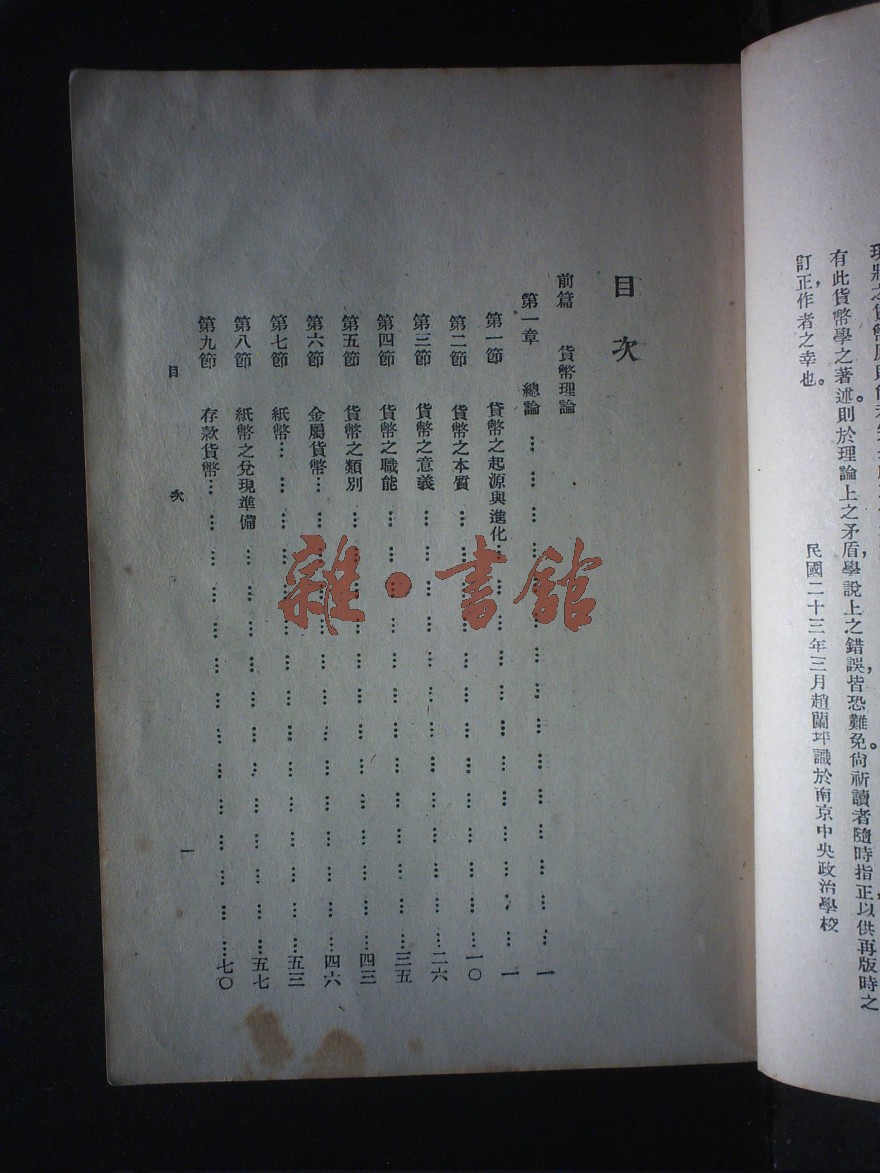 有此貨幣學之著述。則於理論上之矛盾，學說上之錯誤，皆恐難免。尙祈讀者隨時指正，以供再版時之
訂正，作者之幸也。
民國二十三年三月趙蘭坪識於南京中央政治學校
目次
前篇 貨幣理論
第一章 總論………一
第一節 貨幣之起源與進化………一
第二節 貨幣之本質………一〇
第三節 貨幣之意義………二六
第四節 貨幣之職能………三五
第五節 貨幣之類別………四三
第六節 金屬貨幣………四六
第七節 紙幣………五三
第八節 紙幣之兌現準備………五七
第九節 存款貨幣………七〇
目次
一
雜·書館